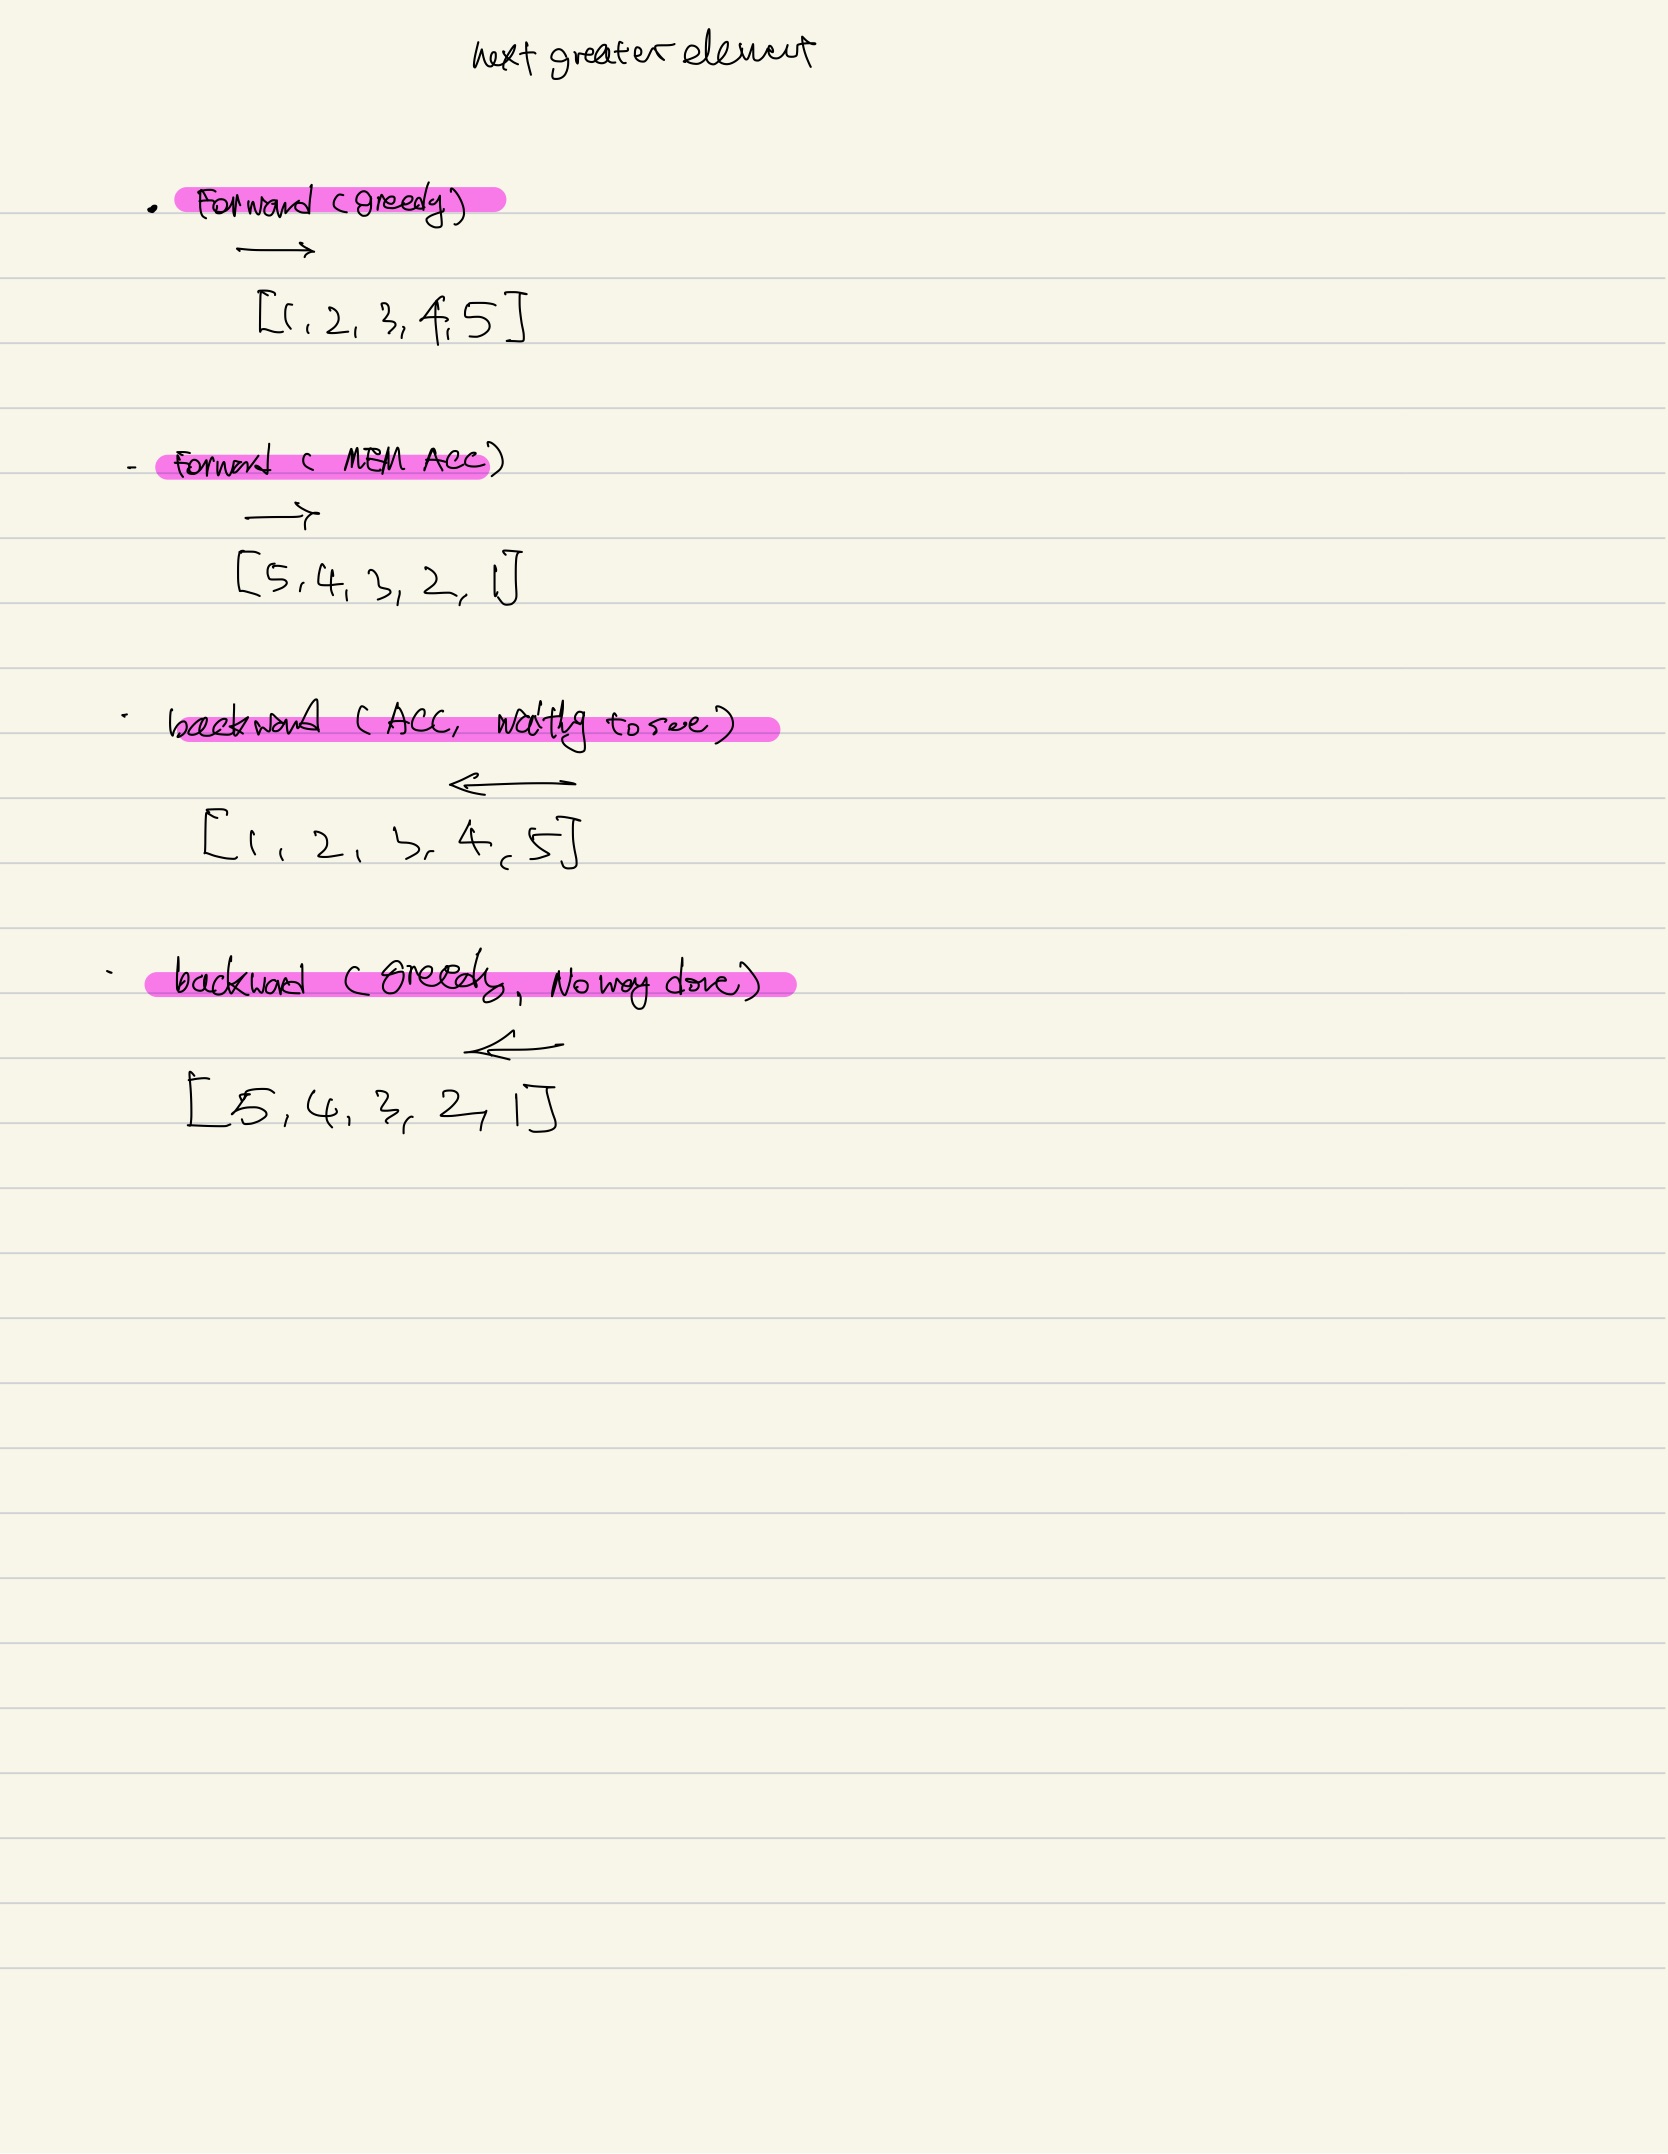 next greater element
• Forward (greedy)
→
[1, 2, 3, 4, 5]
- Forward (MEM ACC)
→
[5, 4, 3, 2, 1]
· backward (ACC, waiting to see)
←
[1, 2, 3, 4, 5]
· backward (Greedy, No way done)
←
[5, 4, 3, 2, 1]